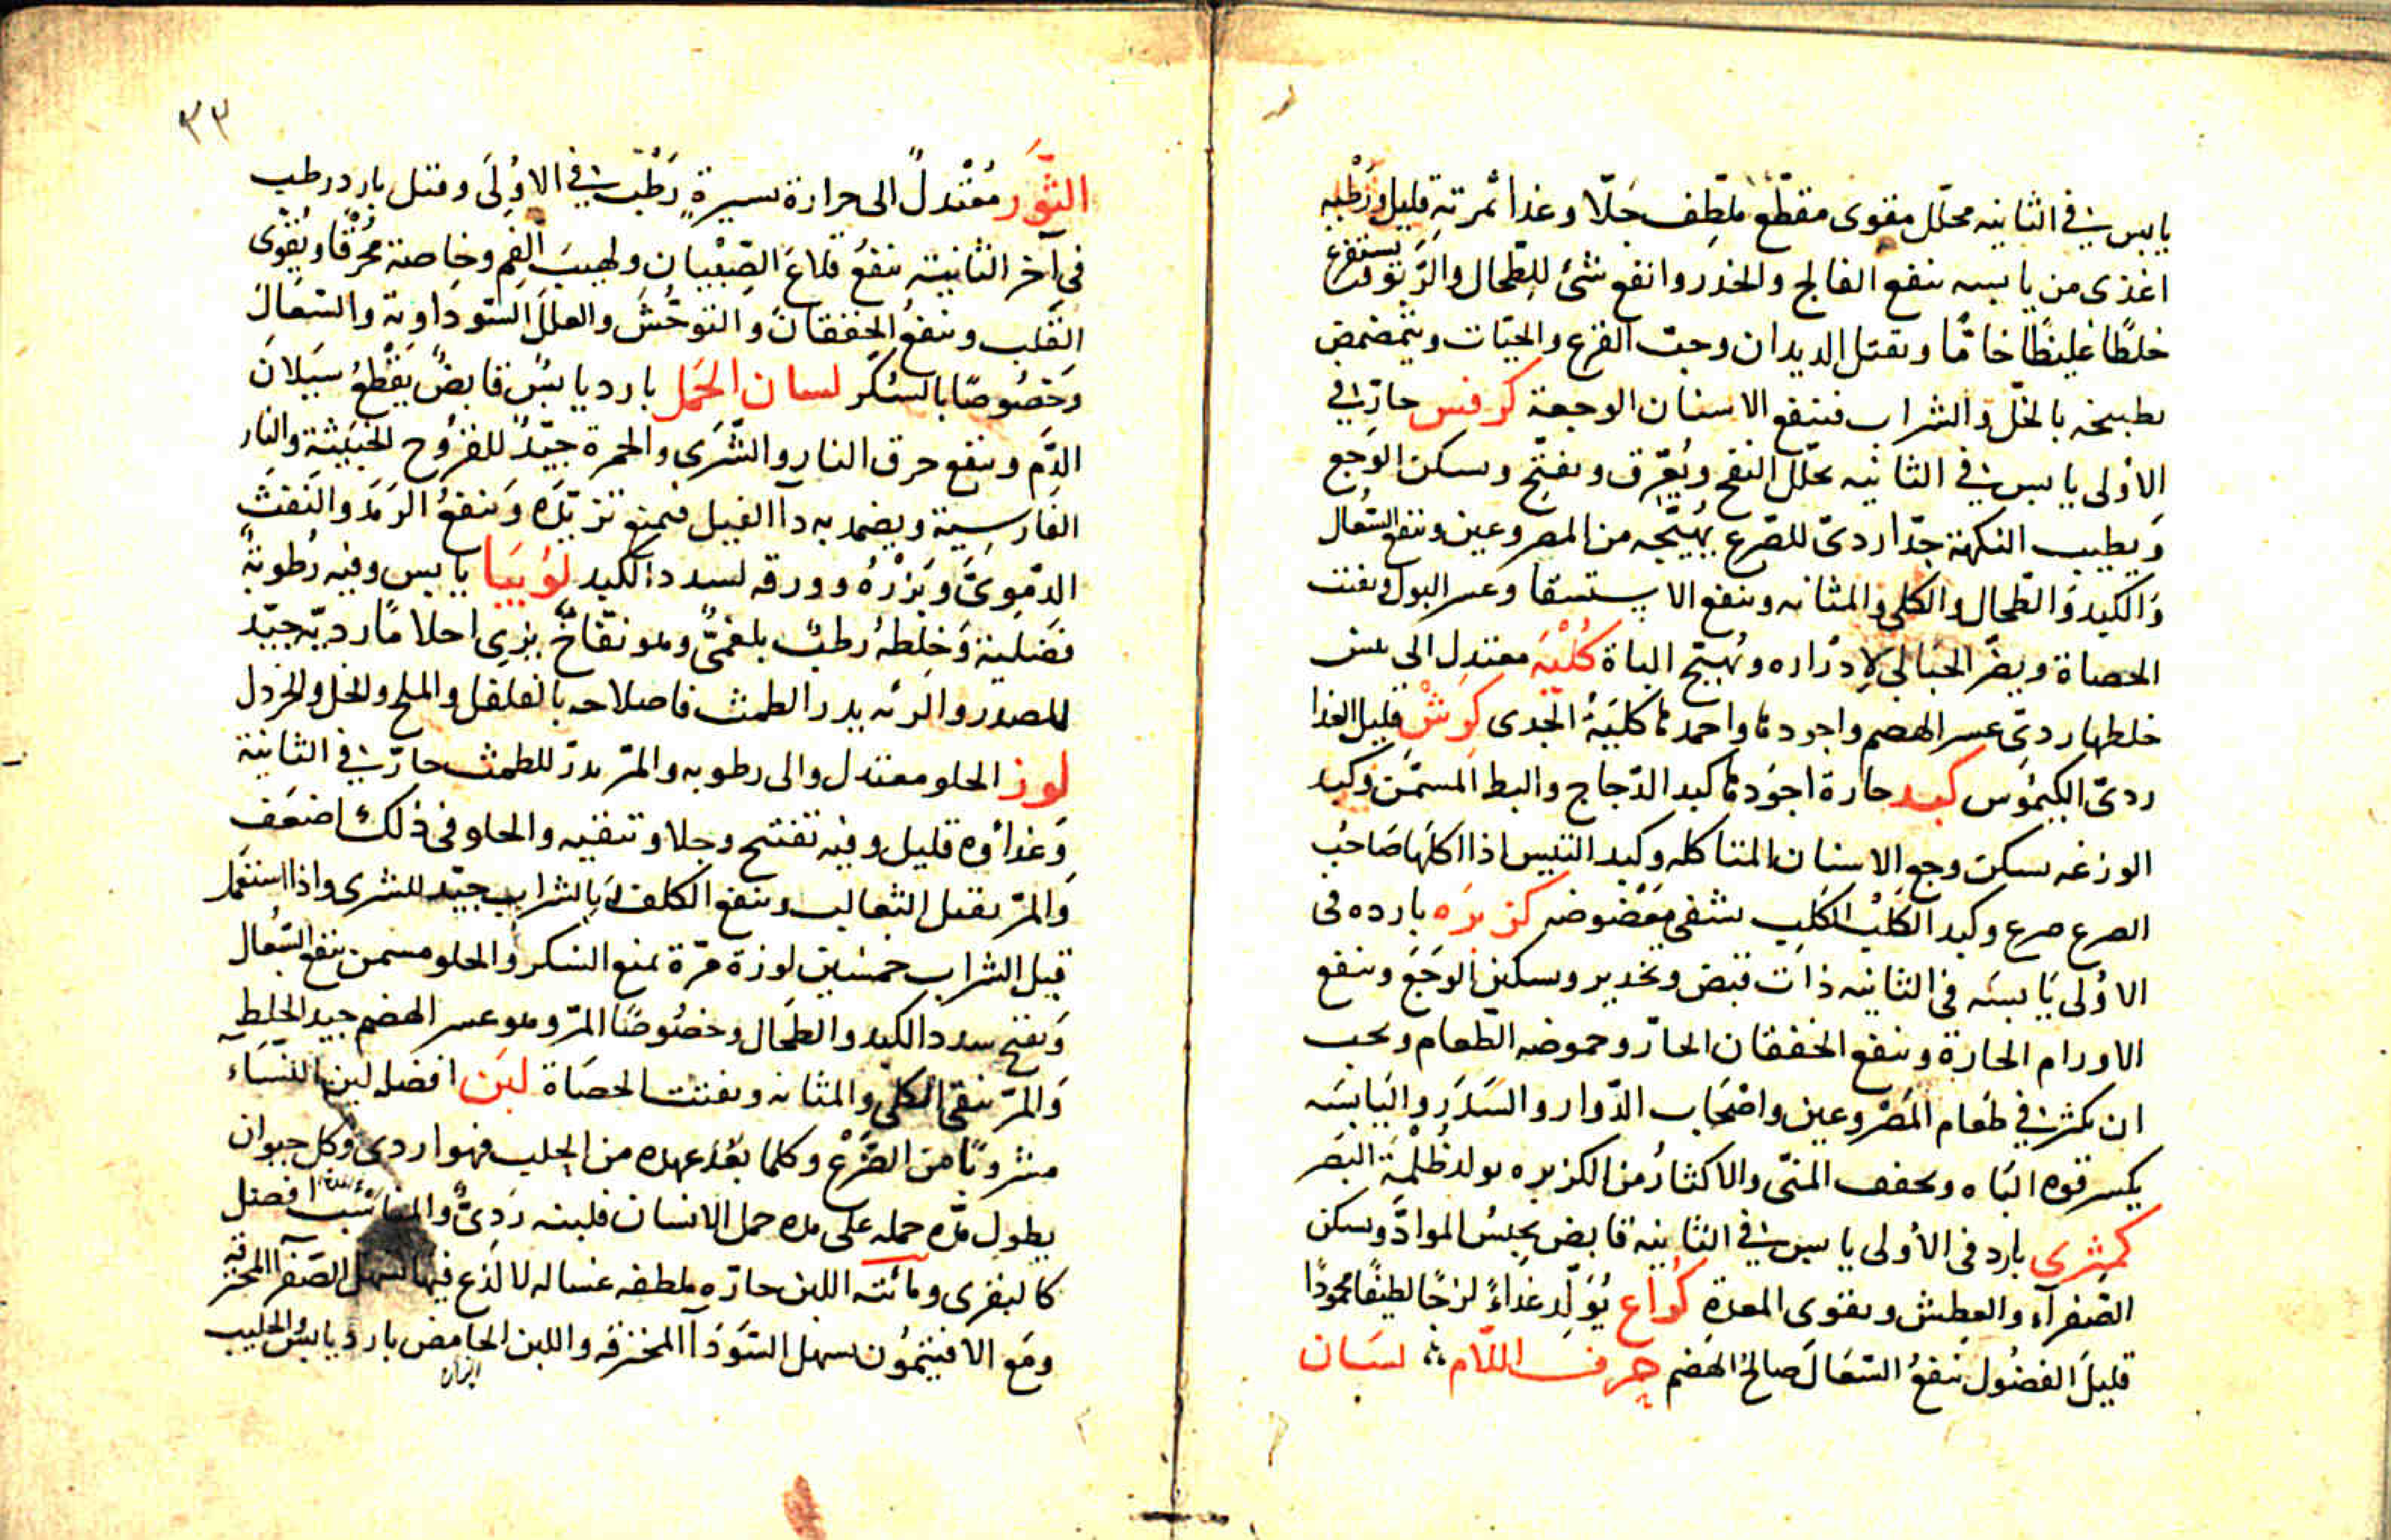 يابس في الثانيه محلل مقوى مقطّع ملطف جلّا وغذا ثمرته قليل ورطبه
اغذى من يابسه ينفع الفالج والخدر وانفع شئ للطحال والرّبو يستفرغ
خلطًا غليظًا خامًا ويقتل الديدان وحب القرع والحيّات ويتمضمض
بطبيخه بالخلّ والشراب فينفع الاسنان الوجعة كرفس حارّ في
الاولى يابس في الثانيه يحلل النفخ ويُعرّق ويفتح ويسكن الوجع
ويطيب النكهة جدّا ردىّ للصّرع يهيّجه من المصروعين وينفع السُّعال
والكبد والطحال والكلى والمثانه وينفع الاستسقا وعسر البول ويفتت
الحصاة ويضرّ الحبالى لادراره ويُهيّج الباة كُلْيَة معتدل الى يبس
خلطها ردىّ عسر الهضم واجودها واحمدها كليَةُ الجدى كَرِشْ قليل الغذا
ردىّ الكيمُوس كبد حارة اجوَدها كبد الدّجاج والبط المسمّن وكبد
الوزغه يسكن وجع الاسنان المتاكله وكبد التيس اذا اكلها صَاحبُ
الصرع صرع وكبد الكَلب الكَلِب يشفى معَضُوضه كزبرَه بارده فى
الاوُلى يَابسَه فى الثانيه ذات قبض وتخدير ويسكن الوجَعَ وينفع
الاورام الحارة وينفع الخفقان الحارّ وحموضه الطّعام ويجب
ان يكثر في طعَام المَصْروعين واصْحَاب الدّوار والسَدَر واليَابسَه
يكسر قوه البَاه ويجفف المنىّ والاكثارُ من الكزبره يولد ظُلْمَة البَصَر
كمثرى بارد فى الأولى يابس في الثانيه قابض يحبسُ الموادَّ ويسكن
الصّفرآء والعطش ويقوى المعدة كُراع يُوَلّد غِداءً لزجًا لطيفًا محمودًا
قليلَ الفضُول ينفعُ السّعَال صالحُ الهَضم حرف اللّام لسَان
٣٣
الثّوَر مُعْتَدلٌ الى حرارة يسيرةٍ رَطْبٌ في الاوُلَى وقيل بارد رطب
فى آخر الثانية ينفعُ قلاعَ الصّبْيان ولهيبَ الفم وخاصة مُحْرقًا ويُقوّى
القَلب وينفعُ الخفقانَ والتوحُّشَ والعللَ السّوداوية والسّعَالَ
وَخصُوصًا بالسُكّر لسان الحَمل بارد يابسٌ قابضٌ يقْطعُ سيَلانَ
الدَّم وينفع حرق النار والشَّرَى والحمرة جيّدٌ للقرُوح الخَبيثة والنار
الفَارسِية ويضمد به دآ الفيل فيمنع تزيّدَه وَينفعُ الرمَدَ والنَفثَ
الدّموىَّ وبَزْرُه وورقه لسدد الكبد لوُبيَا يابس وفيه رُطوبةٌ
فضليَة وَخلطهُ رطبٌ بلغمىٌّ وهو نفّاخٌ يُرى احلامًا رديّه جيّد
للصدر والرئه يدر الطمث فاصلاحه بالفلفل والملح والخل والخردل
لوز الحلو معتدل والى رطوبه والمرّ يدرّ للطمث حارّ في الثانية
وَغذاؤه قليل وفيه تفتيح وجلا وتنقيه والحلو فى ذلك اضعَف
وَالمرّ يقتل الثعالب وينفع الكلف بالشراب جيّد للشرى واذا استعمل
قبل الشراب خمسَين لوزة مرّة يمنع السّكر والحلو مسمن ينفع السّعُال
وَيفتح سدد الكبد والطحَال وخصُوصًا المرّ وهو عسر الهضم جيد الخلط
وَالمرّ ينقى الكلى والمثانه ويفتت الحصَاة لبَن افضله لبن النسَاء
مشروبًا من الضَّرْع وكلما بعُد عهده من الحلب فهو اردى وكل حيوان
يطول مدّه حمله على مده حمل الانسان فلبنه ردىّ والمناسب افضل
كالبقرى ومائيّته اللبن حارّه ملطفه غساله لا لذع فيها يسهل الصّفرآ المحترقه
ومَع الافيثمُون يسهل السَّودَآ المحترقه واللبن الحامض بارد يابس الحليب